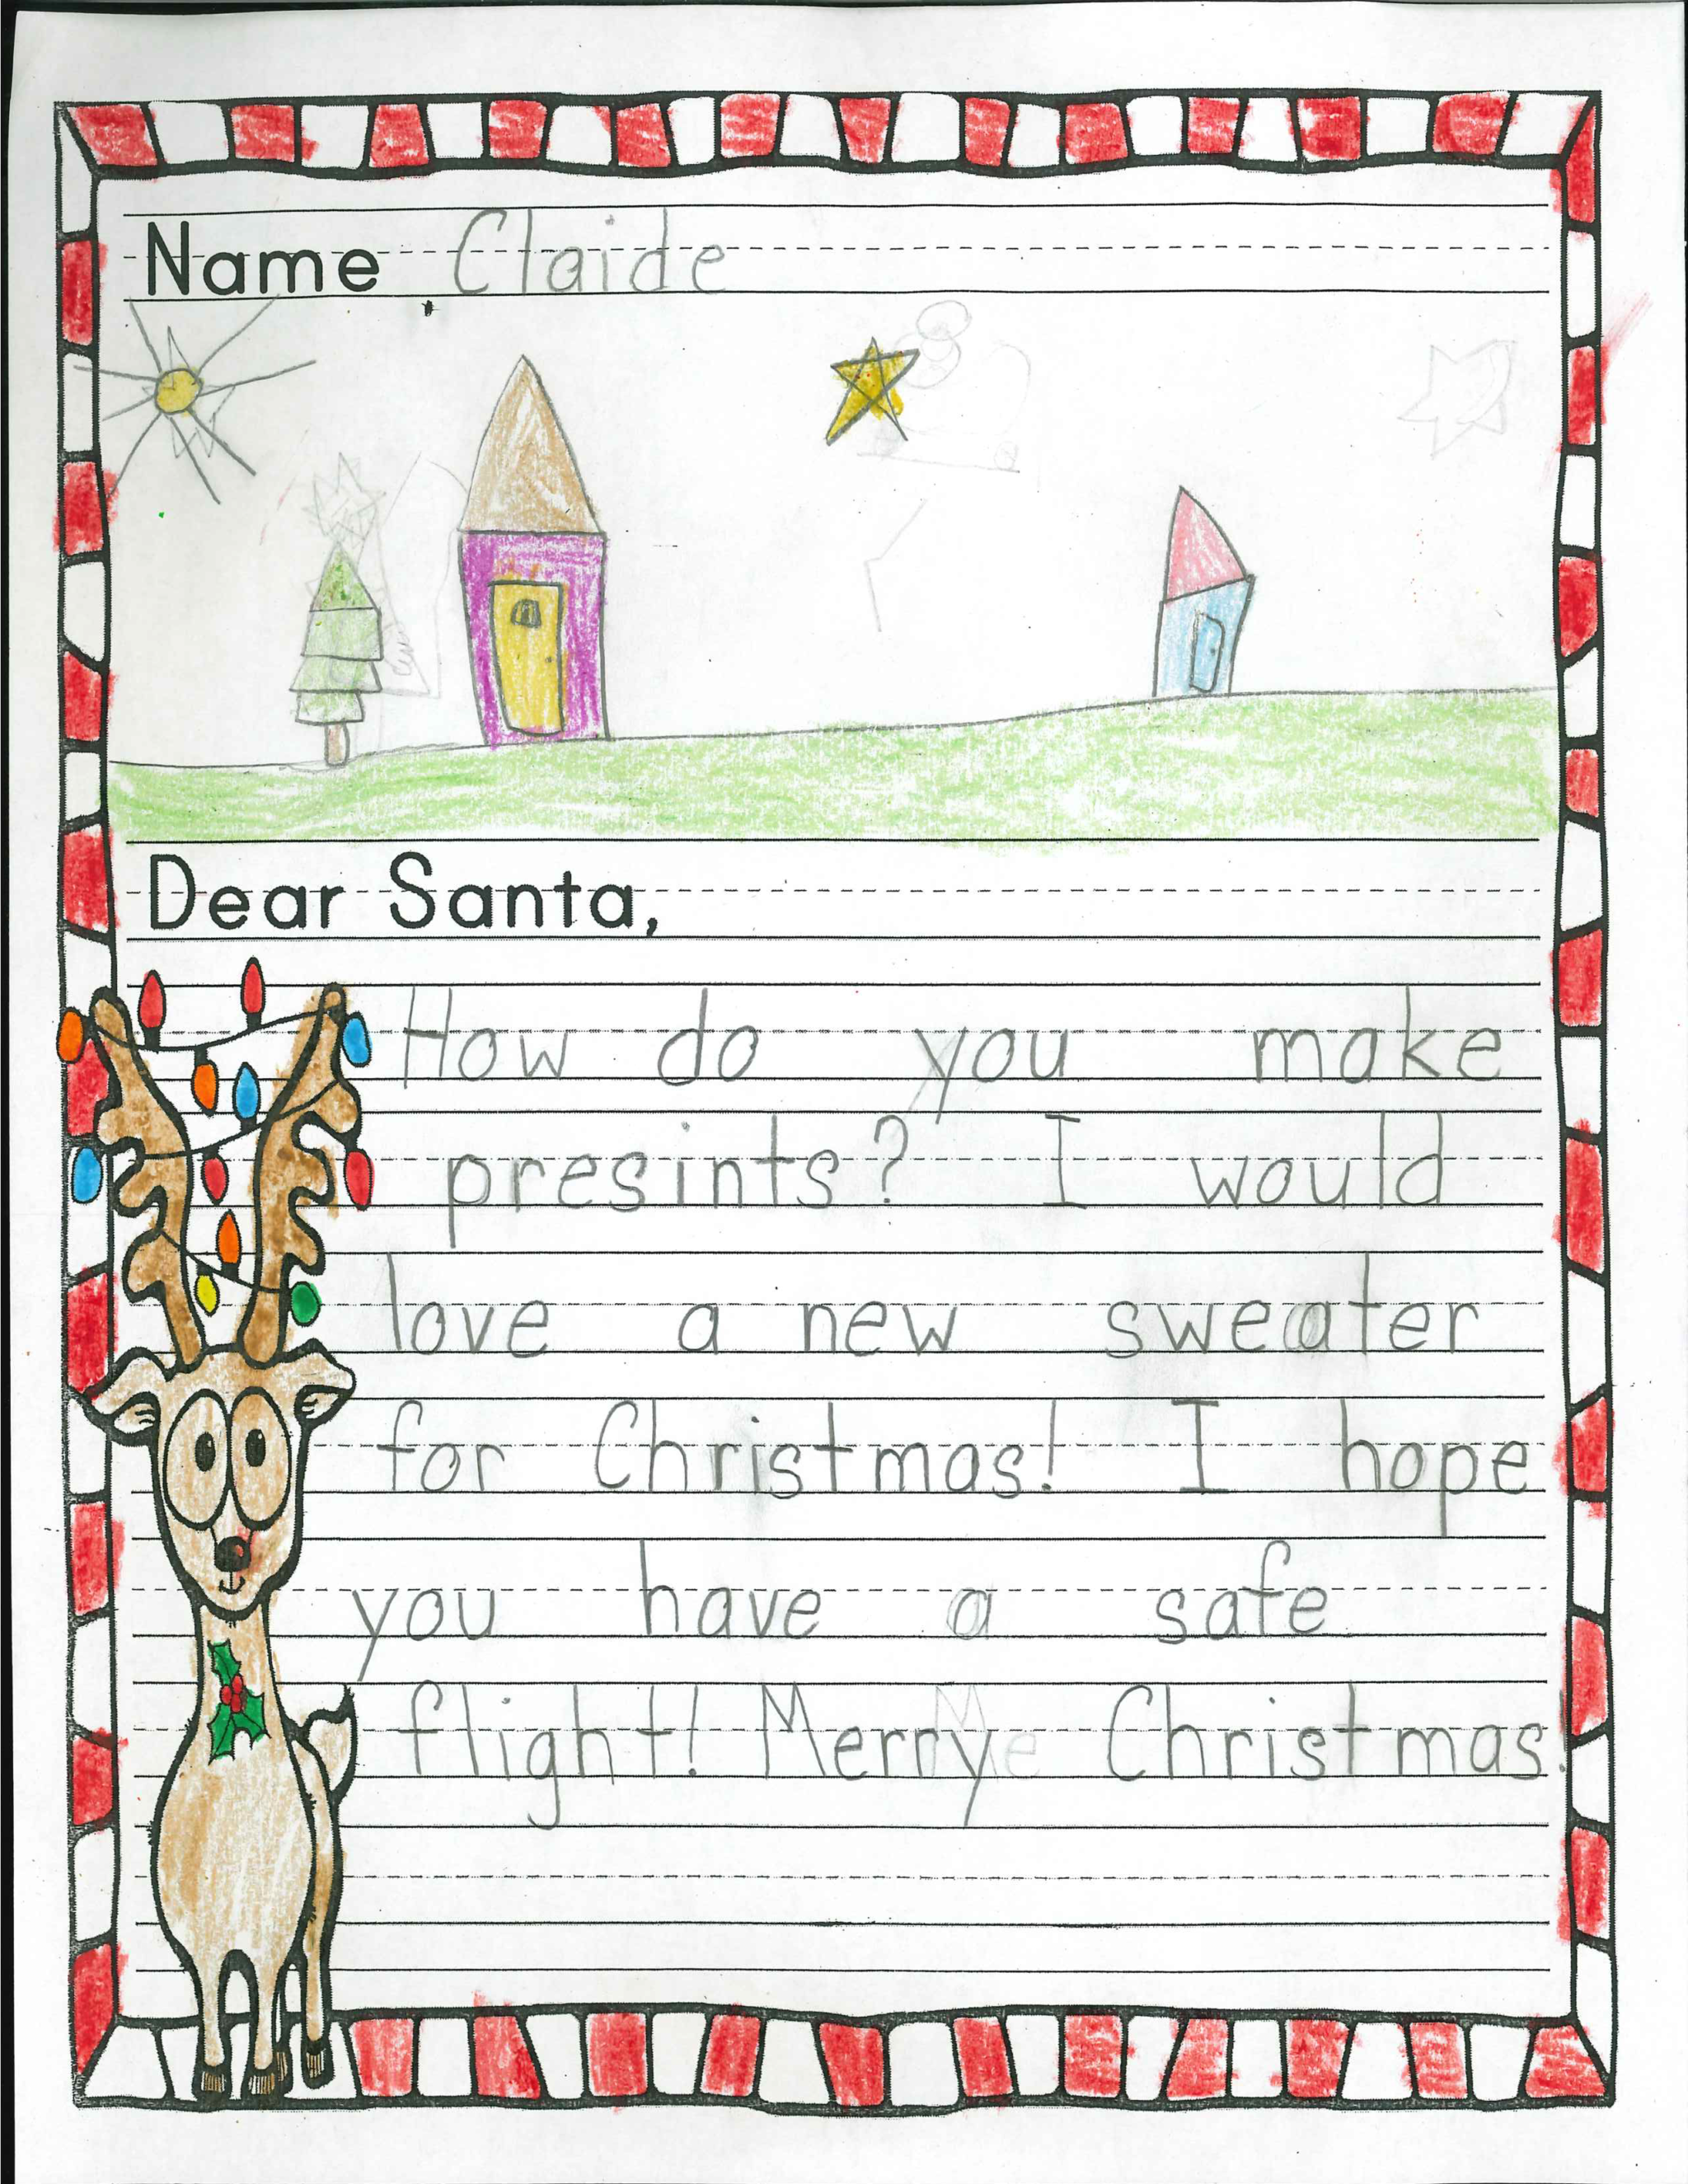 Name Claide
Dear Santa,
How do you make
presints? I would
love a new sweater
for Christmas! I hope
you have a safe
flight! Merry Christmas!